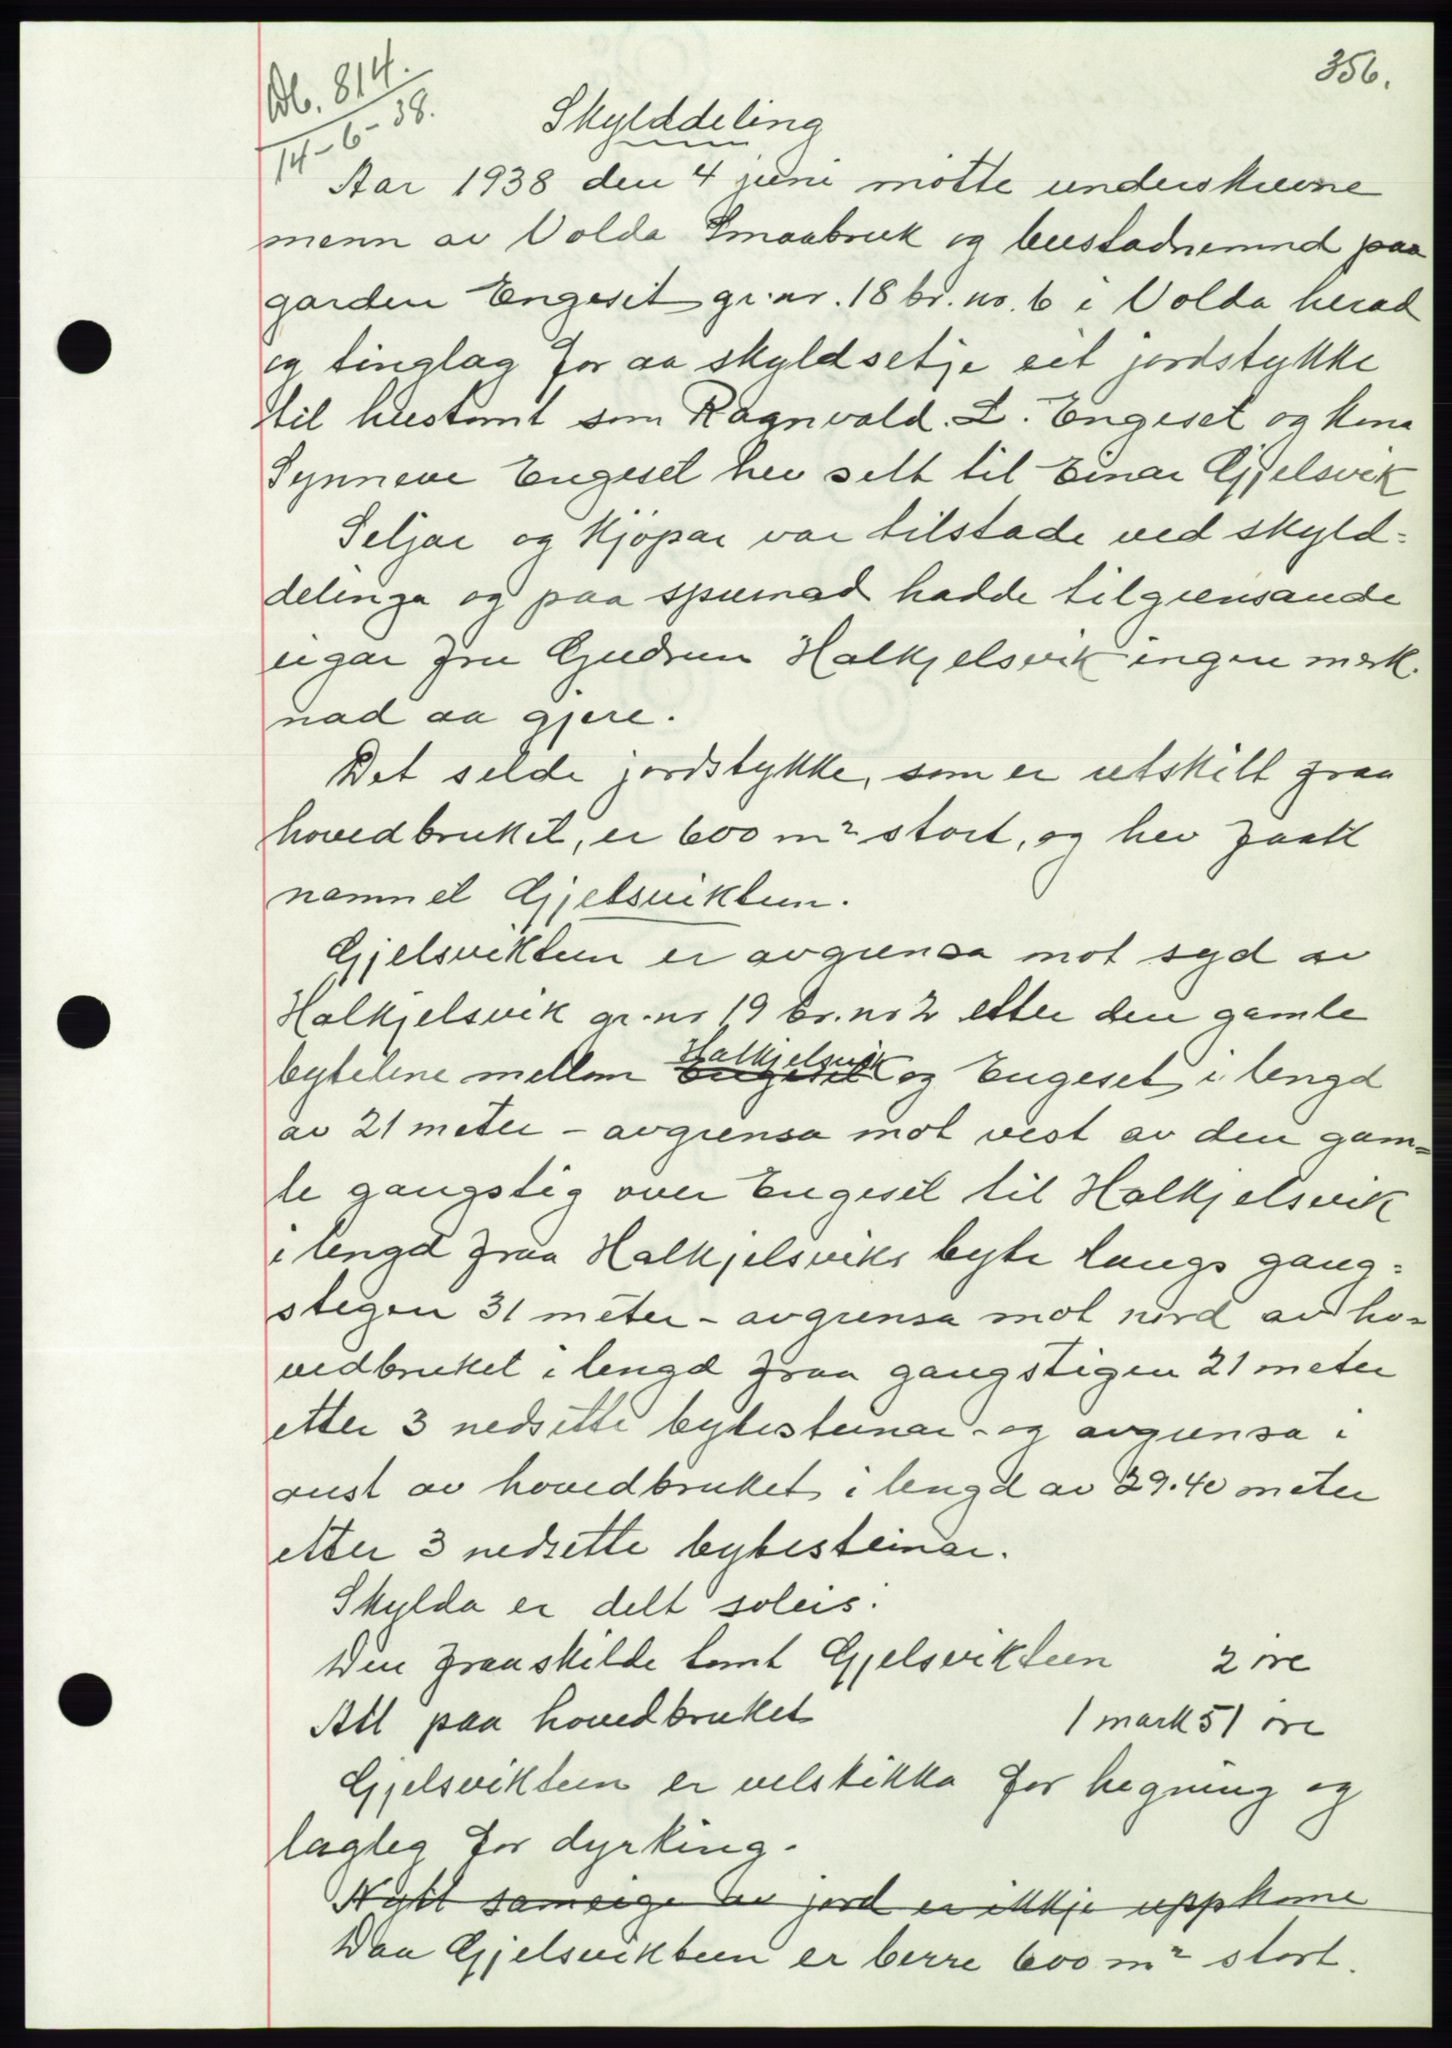 356.
Db. 814.
14-6-38.
Skylddeling
Aar 1938 den 4 juni møtte underskrevne
menn av Volda Smaabruk og bustadnemnd paa
garden Engeset gr.nr. 18 br. no. 6 i Volda herad
og tinglag for aa skyldsetje eit jordstykke
til hustomt som Ragnvald. L. Engeset og kona
Synneve Engeset hev selt til Einar Gjelsvik
Seljar og kjøpar var tilstade ved skyld=
delinga og paa spurnad hadde tilgrensande
eigar fru Gudrun Halkjelsvik ingen merk-
nad aa gjere.
Det selde jordstykke, som er utskilt fraa
hovedbruket, er 600 m² stort, og hev faatt
namnet Gjelsviktun.
Gjelsviktun er avgrensa mot syd av
Halkjelsvik gr.nr 19 br.nr 2 etter den gamle
byteline mellom Engeset Halkjelsvik og Engeset i lengd
av 21 meter – avgrensa mot vest av den gam=
le gangstig over Engeset til Halkjelsvik
i lengd fraa Halkjelsviks byte langs gang=
stigen 31 meter – avgrensa mot nord av ho=
vedbruket i lengd fraa gangstigen 21 meter
etter 3 nedsette bytesteinar – og avgrensa i
aust av hovedbruket i lengd av 29.40 meter
etter 3 nedsette bytesteinar.
Skylda er delt soleis:
Den fraaskilde tomt Gjelsviktun 2 øre
Att paa hovedbruket 1 mark 51 øre
Gjelsviktun er velskikka for hegning og
lagleg for dyrking.
Nytt sameige av jord er ikkje uppkome
Daa Gjelsviktun er berre 600 m² stort.